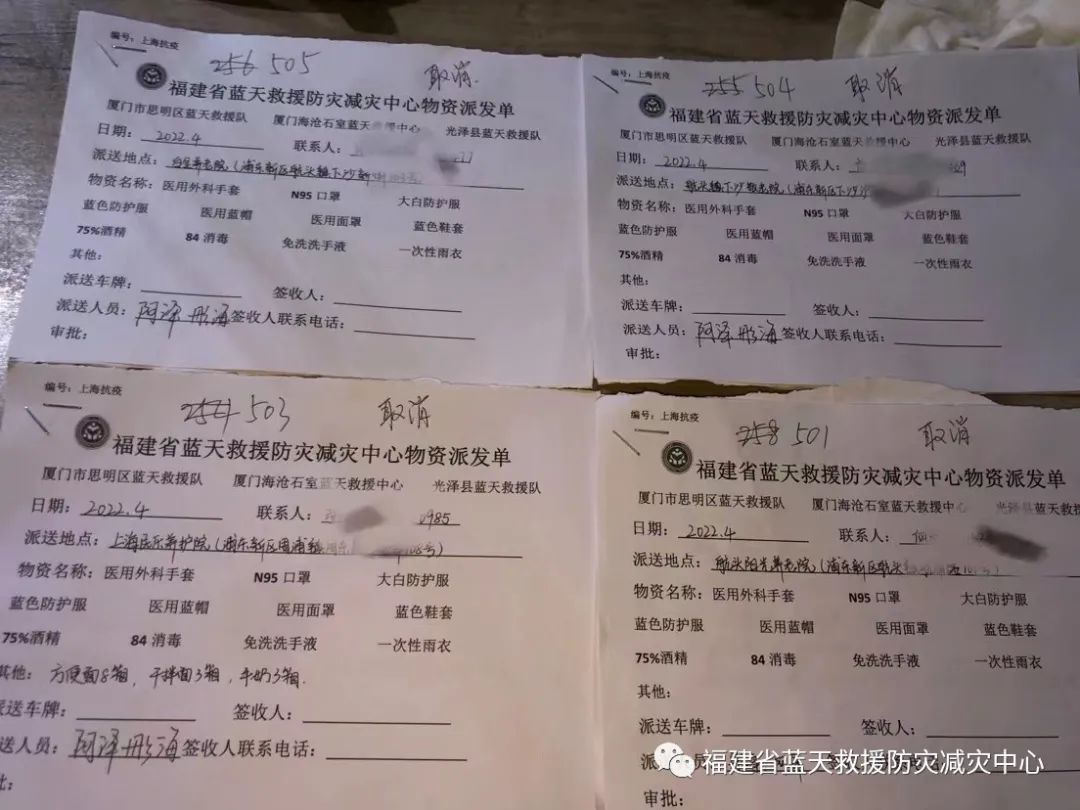 编号：上海抗疫
256 505 取消
福建省蓝天救援防灾减灾中心物资派发单
厦门市思明区蓝天救援队 厦门海沧石室蓝天救援中心 光泽县蓝天救援队
日期：2022.4 联系人：
派送地点：养老院（浦东新区航头镇下沙新
物资名称：医用外科手套 N95 口罩 大白防护服
蓝色防护服 医用蓝帽 医用面罩 蓝色鞋套
75%酒精 84 消毒 免洗洗手液 一次性雨衣
其他：
派送车牌： 签收人：
派送人员：阿泽 彤海 签收人联系电话：
审批：
编号：上海抗疫
255 504 取消
福建省蓝天救援防灾减灾中心物资派发单
厦门市思明区蓝天救援队 厦门海沧石室蓝天救援中心 光泽县蓝天救援队
日期：2022.4 联系人：
派送地点：航头镇下沙敬老院（浦东新区下沙
物资名称：医用外科手套 N95 口罩 大白防护服
蓝色防护服 医用蓝帽 医用面罩 蓝色鞋套
75%酒精 84 消毒 免洗洗手液 一次性雨衣
其他：
派送车牌： 签收人：
派送人员：阿泽 彤海 签收人联系电话：
审批：
编号：上海抗疫
254 503 取消
福建省蓝天救援防灾减灾中心物资派发单
厦门市思明区蓝天救援队 厦门海沧石室蓝天救援中心 光泽县蓝天救援队
日期：2022.4 联系人： 0985
派送地点：上海民乐养护院（浦东新区周浦镇 108号）
物资名称：医用外科手套 N95 口罩 大白防护服
蓝色防护服 医用蓝帽 医用面罩 蓝色鞋套
75%酒精 84 消毒 免洗洗手液 一次性雨衣
其他：方便面8箱，干拌面3箱，牛奶3箱.
派送车牌： 签收人：
送人员：阿泽 彤海 签收人联系电话：
批：
编号：上海抗疫
258 501 取消
福建省蓝天救援防灾减灾中心物资派发单
厦门市思明区蓝天救援队 厦门海沧石室蓝天救援中心 光泽县蓝天救援
日期：2022.4 联系人：
派送地点：航头阳光养老院（浦东新区航头
物资名称：医用外科手套 N95 口罩 大白防护服
蓝色防护服 医用蓝帽 医用面罩 蓝色鞋套
75%酒精 84 消毒 免洗洗手液 一次性雨衣
其他：
派送车牌： 签收人：
派
审批：
福建省蓝天救援防灾减灾中心